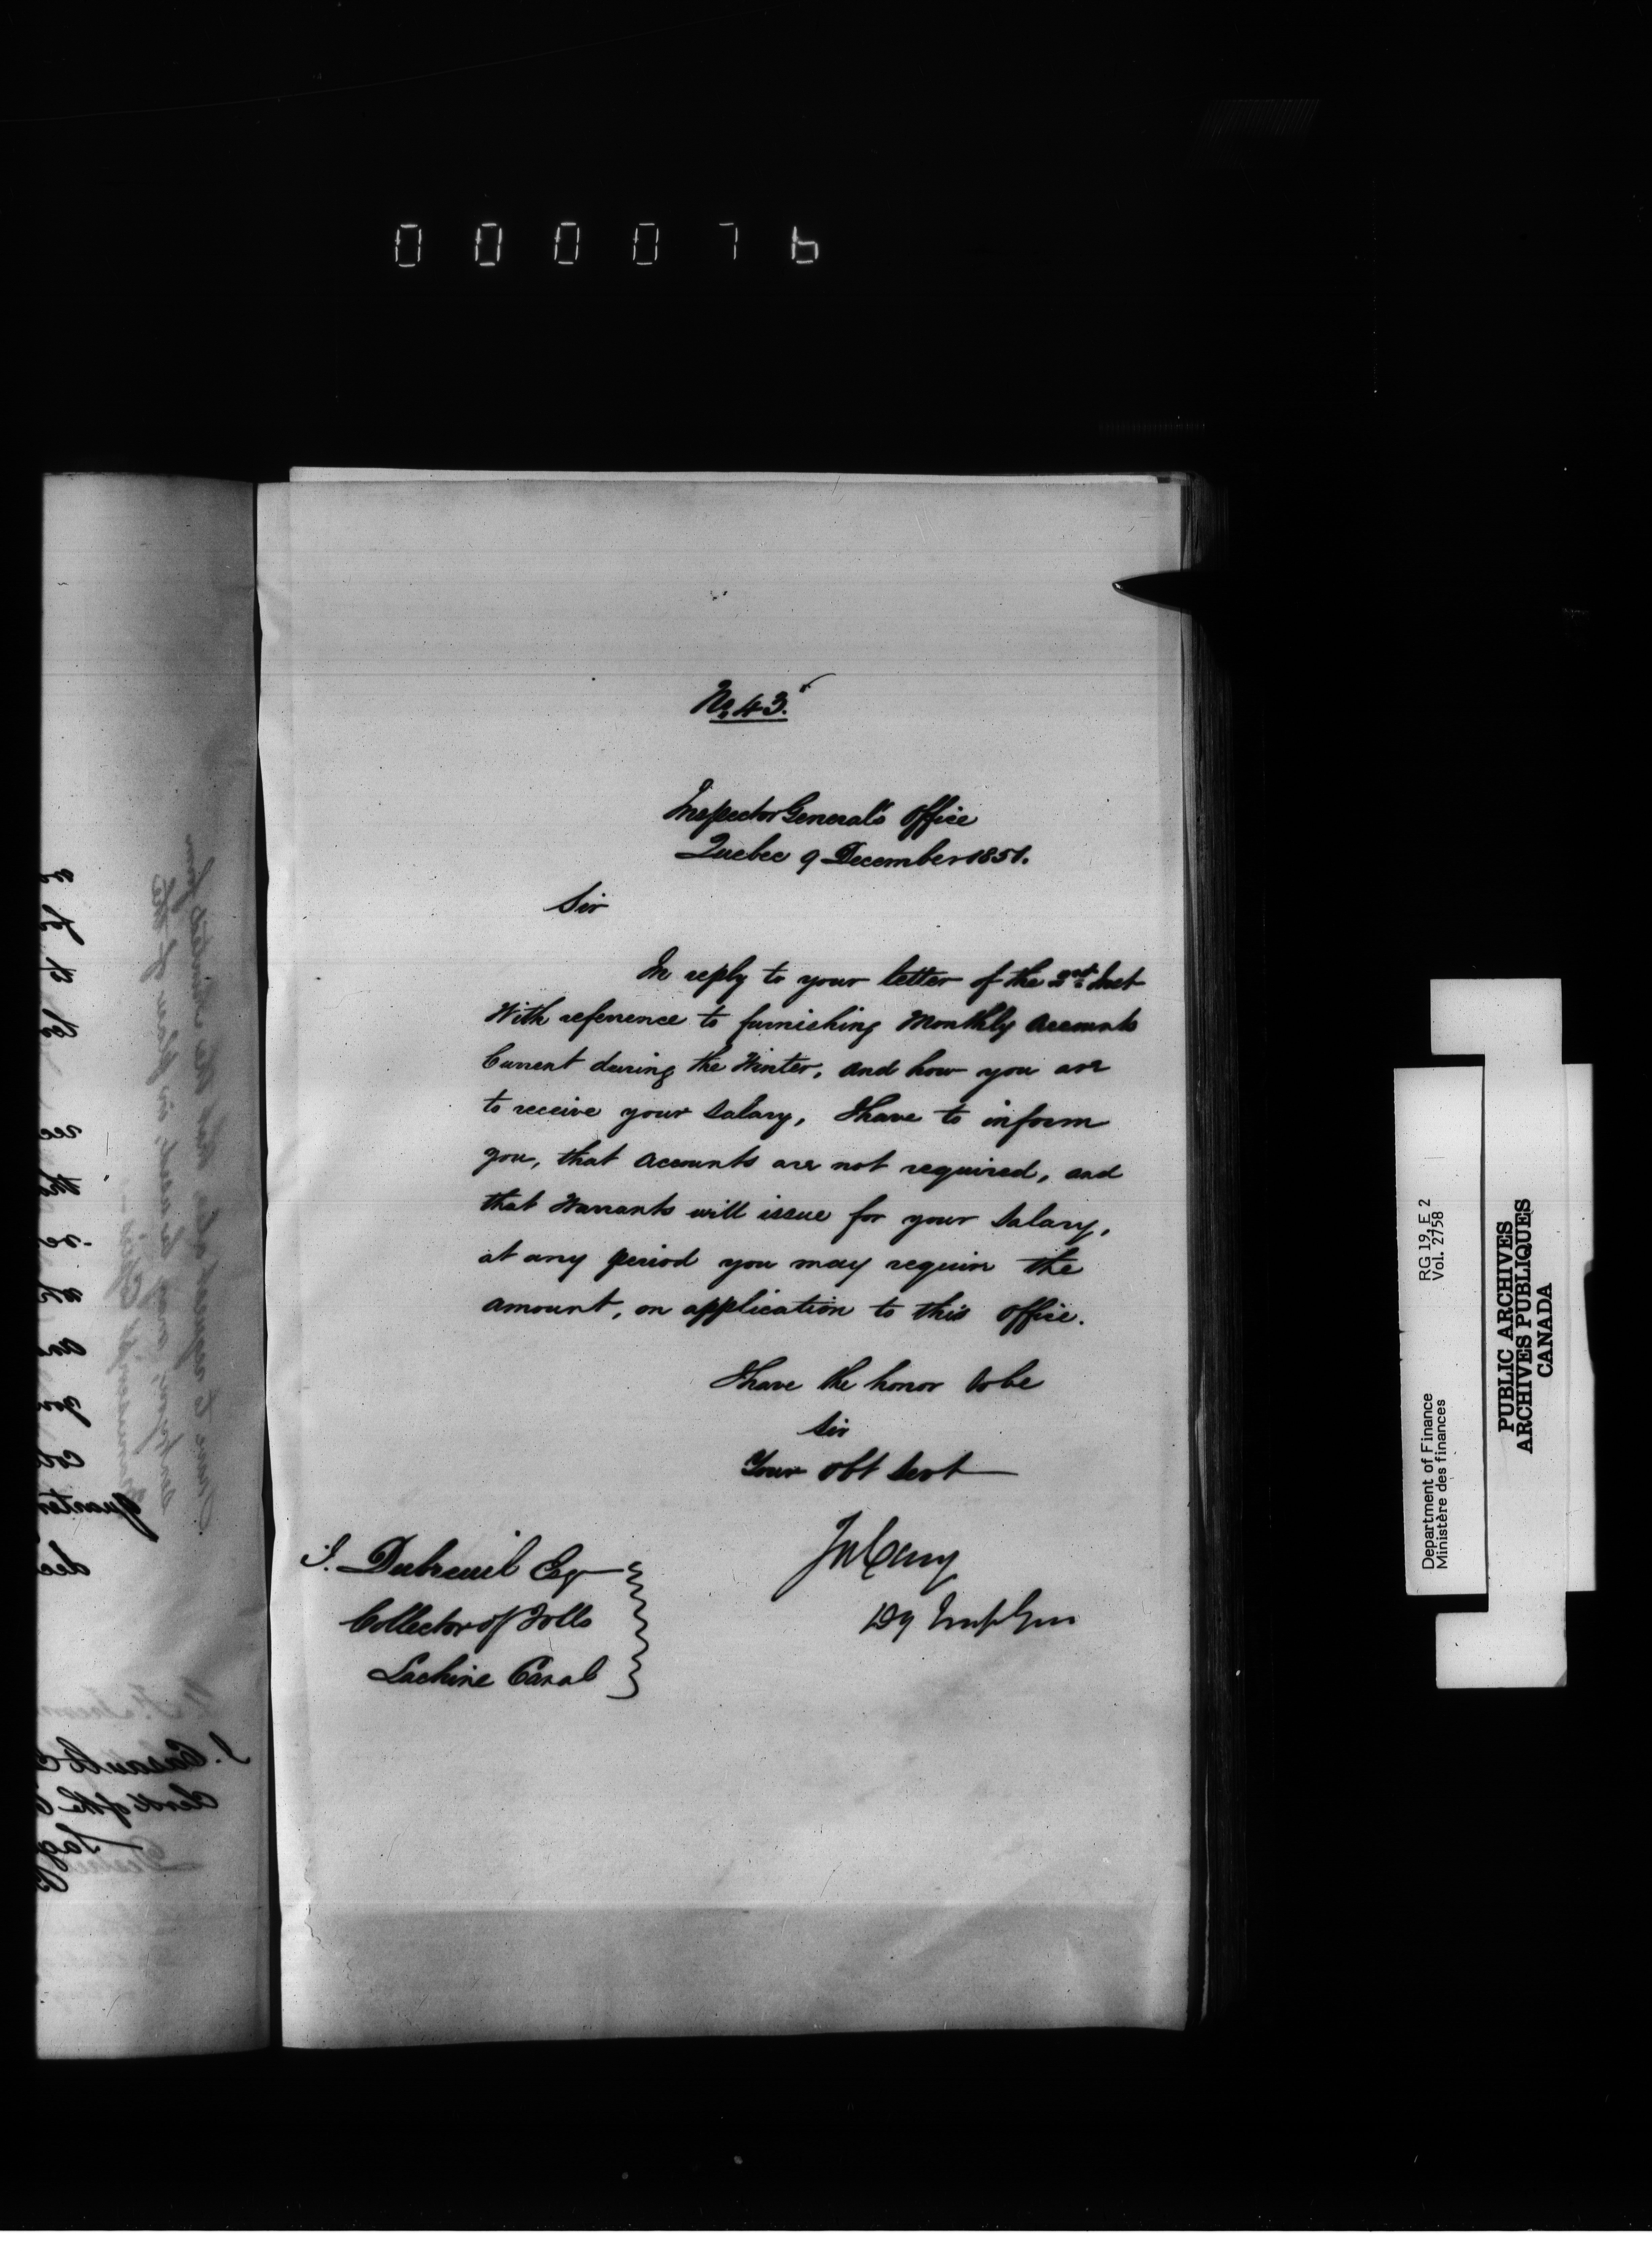 0 0 0 0 7 6
No. 43.
Inspector General's Office
Quebec 9 December 1851.
Sir
In reply to your letter of the 2nd Inst
With reference to furnishing Monthly Accounts
Current during the Winter, and how you are
to receive your Salary, I have to inform
you, that Accounts are not required, and
that Warrants will issue for your Salary,
at any period you may require the
Amount, on application to this Office.
I have the honor to be
Sir
Your Obt Servt
Jos Cary
Dy Insp Gen
J. Dubreuil Esq
Collector of Tolls
Lachine Canal
Department of Finance RG 19, E 2
Ministère des finances Vol. 2758
PUBLIC ARCHIVES
ARCHIVES PUBLIQUES
CANADA